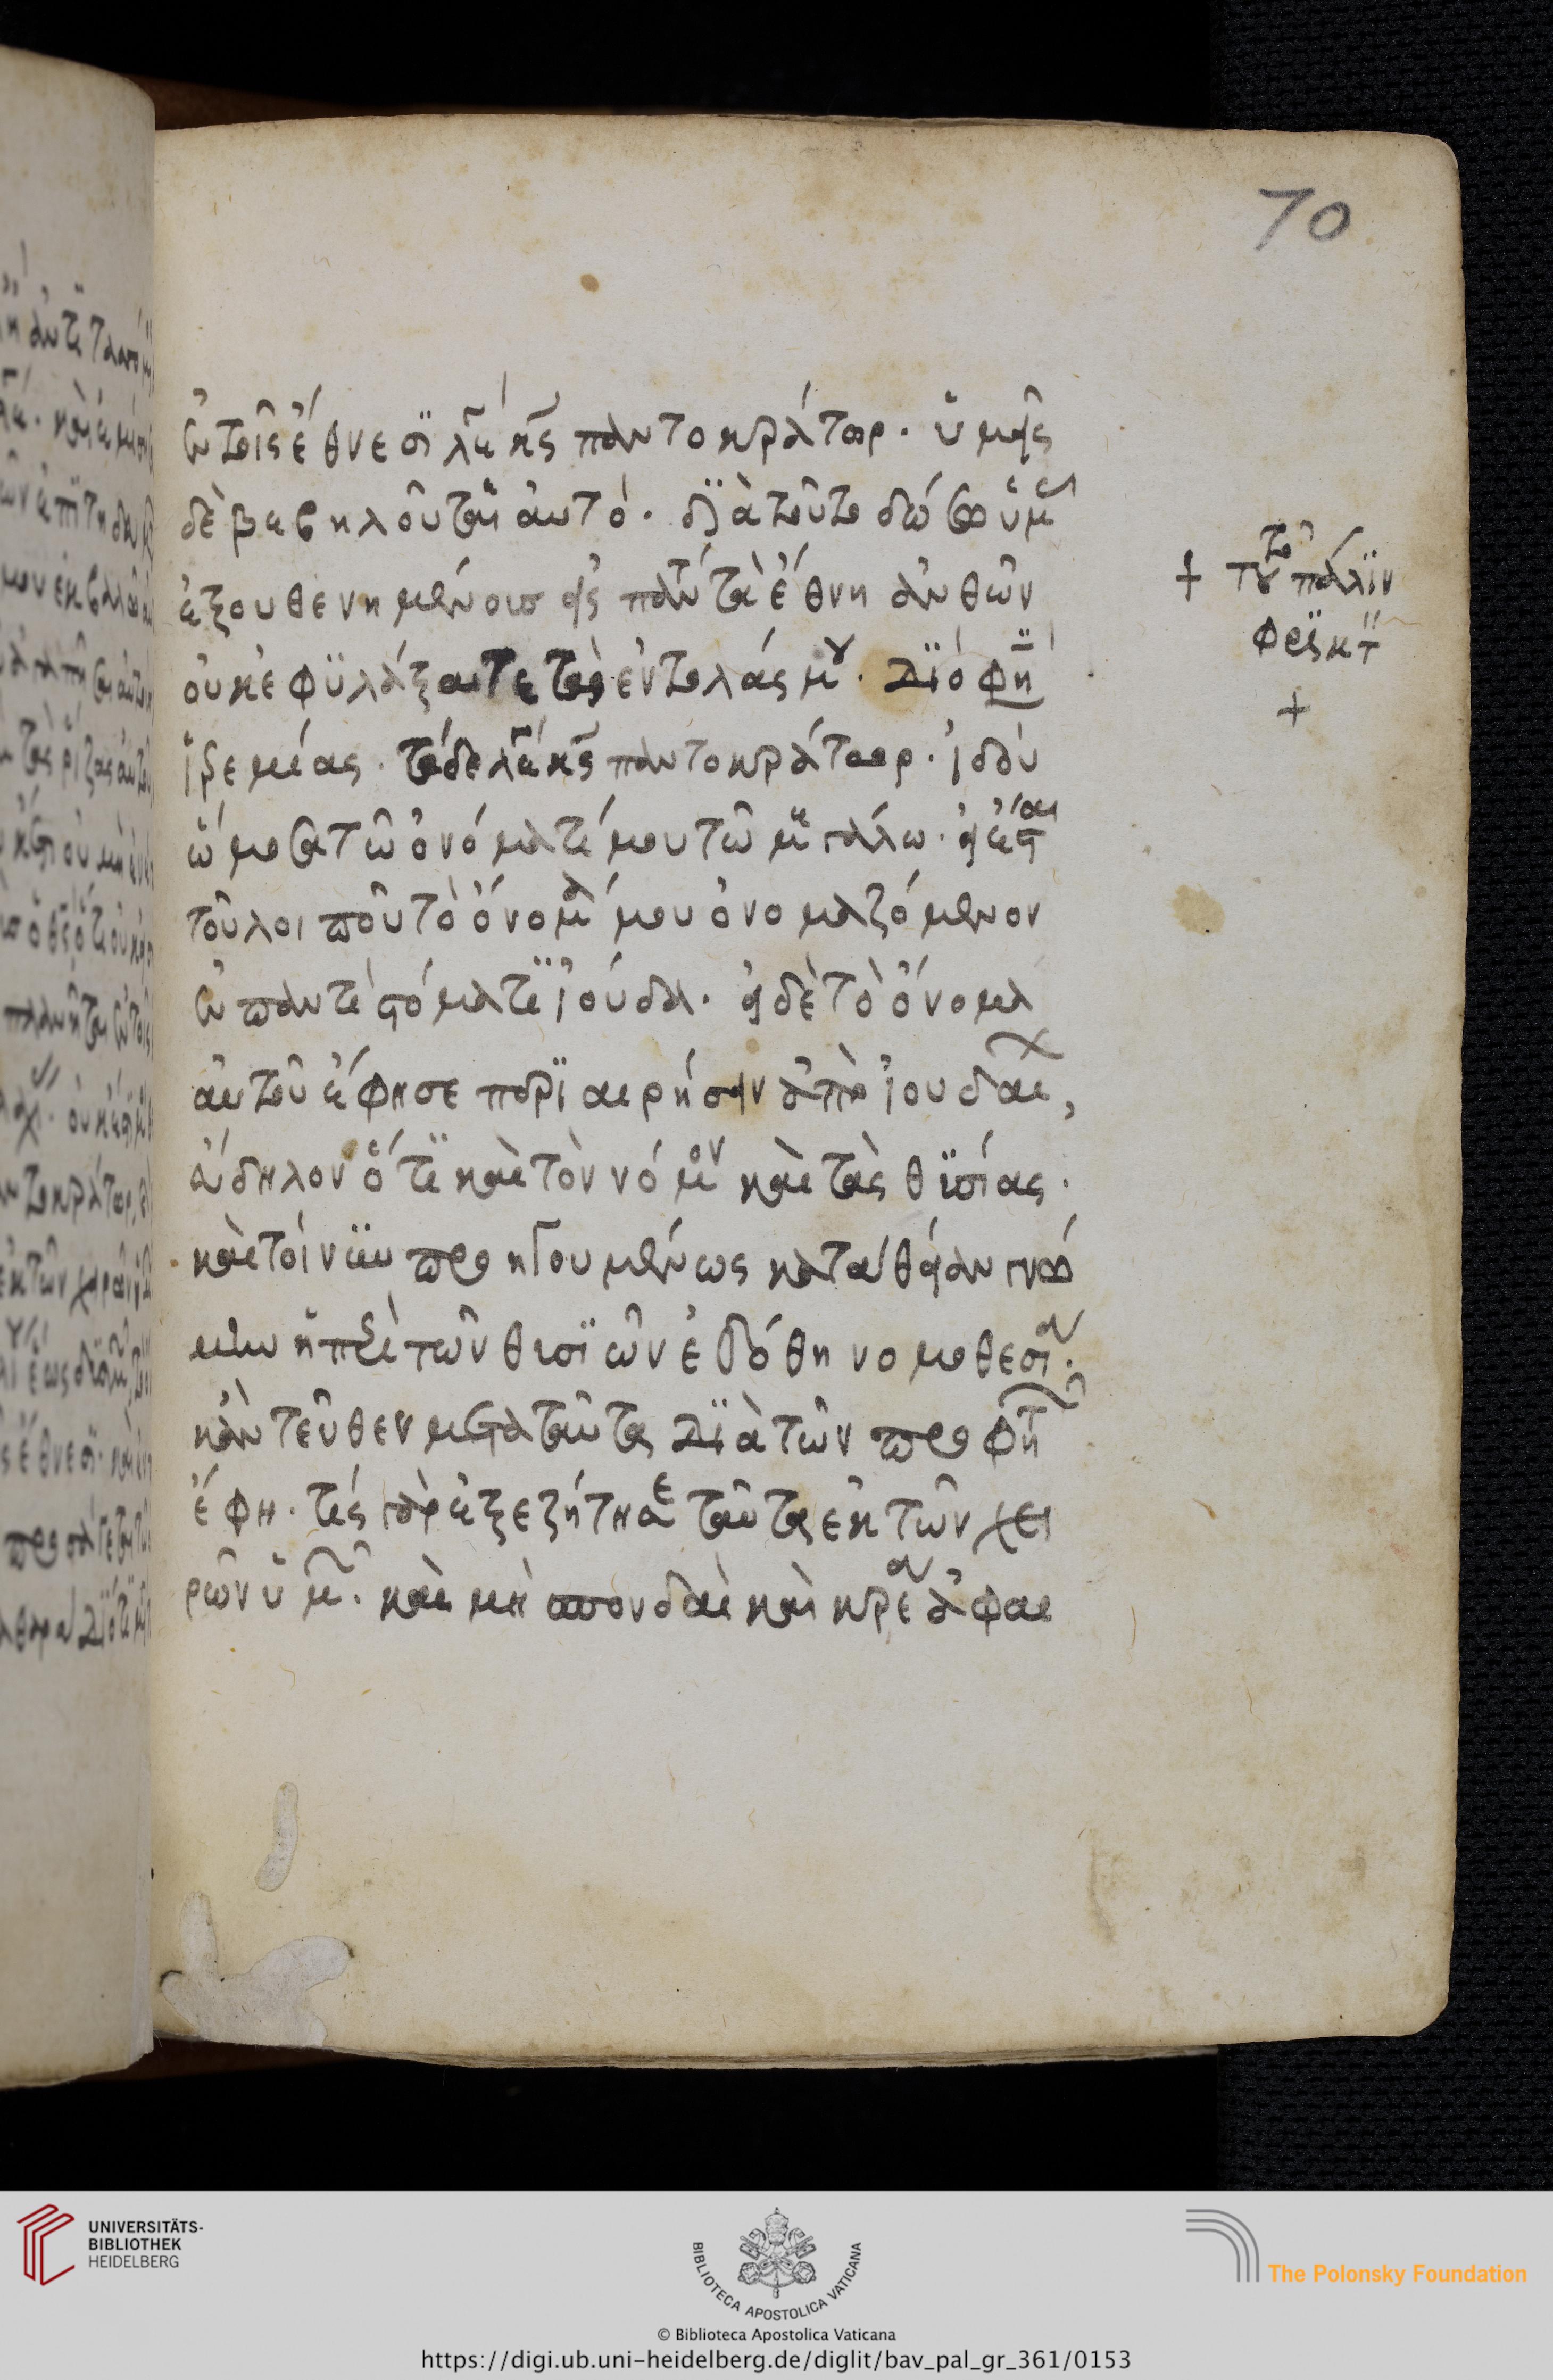 70
ἐν τοῖς ἔθνεσϊ λέγει κς παντοκράτωρ. ὑμεῖς
δὲ βεβηλοῦται αὐτό. δϊὰ τοῦτο δώσω ὑμᾶς
ἐξουθενημένους εἰς πάντα τὰ ἔθνη ἀνθῶν
οὐκ ἐφϋλάξατε τὰς ἐντολάς μου. Δϊό φη
ἱερεμίας. τάδε λέγει κς παντοκράτωρ. ἰδοὺ
ὤμοσα τῶ ὀνόματί μου τῶ μεγάλω. εἰ ἔσται
τοῦ λοιποῦ τὸ ὄνομά μου ὀνομαζόμενον
ἐν παντὶ στόματϊ ἰούδα. εἰ δὲ τὸ ὄνομα
αὐτοῦ ἔφησε περϊαιρήσειν ἀπὸ ἰουδαι,
εὔδηλον ὅτϊ καὶ τὸν νόμον καὶ τὰς θϋσίας.
καὶ τοίνϋν προηγουμένως κατὰ θείαν γνώ
μην ἡ περὶ τῶν θυσϊῶν ἐδόθη νομοθεσία.
κἀντεῦθεν μετὰ ταῦτα Δϊὰ τῶν προφητῶν
ἔφη. τίς γὰρ ἐξεζήτησε ταῦτα ἐκ τῶν χει
ρῶν ὑμῶν. καὶ μὴ σπονδαὶ καὶ κρέα ἀφαι
+ τοῦτο πάλϊν
φρϊκτ
+
UNIVERSITÄTS-
BIBLIOTHEK
HEIDELBERG
BIBLIOTECA APOSTOLICA VATICANA
The Polonsky Foundation
© Biblioteca Apostolica Vaticana
https://digi.ub.uni-heidelberg.de/diglit/bav_pal_gr_361/0153